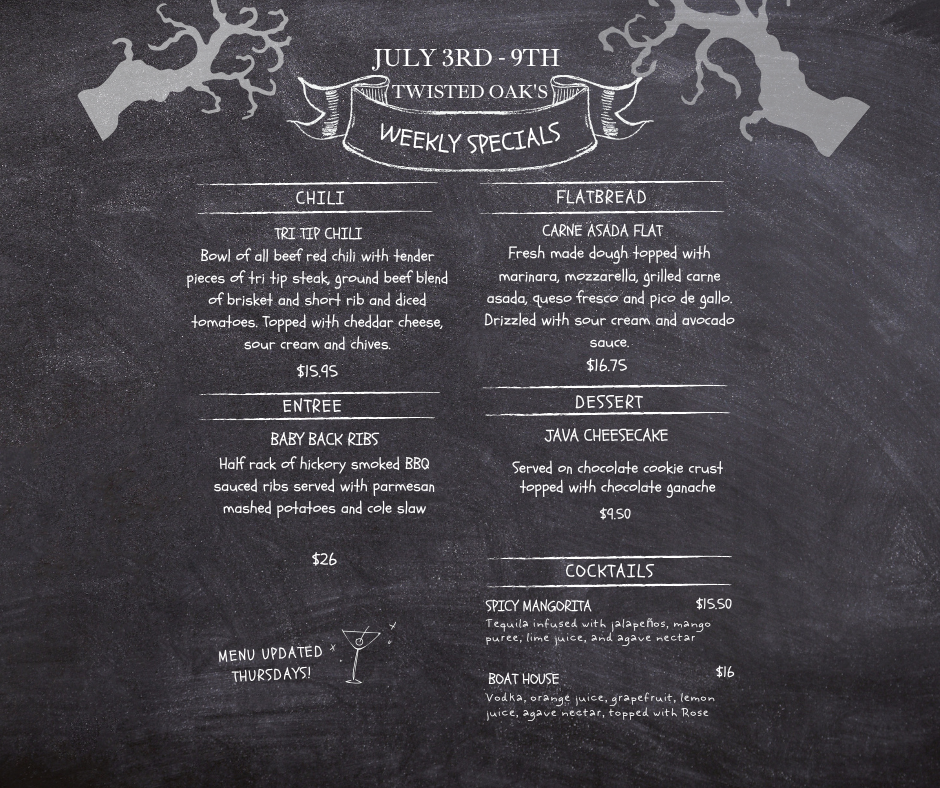 JULY 3RD - 9TH
TWISTED OAK'S
WEEKLY SPECIALS
CHILI
TRI TIP CHILI
Bowl of all beef red chili with tender
pieces of tri tip steak, ground beef blend
of brisket and short rib and diced
tomatoes. Topped with cheddar cheese,
sour cream and chives.
$15.95
ENTREE
BABY BACK RIBS
Half rack of hickory smoked BBQ
sauced ribs served with parmesan
mashed potatoes and cole slaw
$26
MENU UPDATED
THURSDAYS!
FLATBREAD
CARNE ASADA FLAT
Fresh made dough topped with
marinara, mozzarella, grilled carne
asada, queso fresco and pico de gallo.
Drizzled with sour cream and avocado
sauce.
$16.75
DESSERT
JAVA CHEESECAKE
Served on chocolate cookie crust
topped with chocolate ganache
$9.50
COCKTAILS
SPICY MANGORITA $15.50
Tequila infused with jalapeños, mango
puree, lime juice, and agave nectar
BOAT HOUSE $16
Vodka, orange juice, grapefruit, lemon
juice, agave nectar, topped with Rose